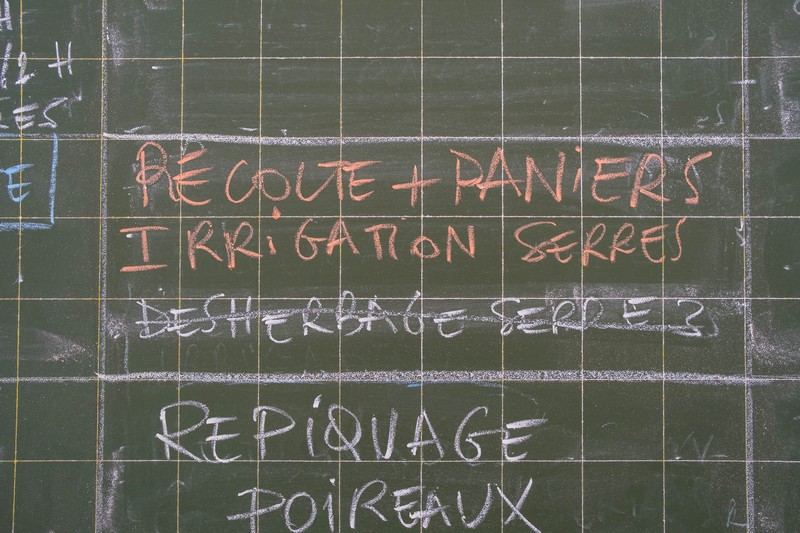 H
1/2 H
E
RÉCOLTE + PANIERS
IRRIGATION SERRES
DESHERBAGE SERRE 3
REPIQUAGE
POIREAUX